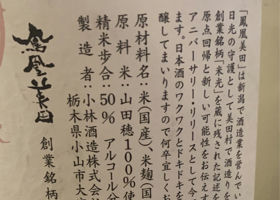 「鳳凰美田」は新潟で酒造業を学んでい
日光の守護として美田村で酒造りを
創業銘柄「米光」を蔵に残された記述を
原点回帰と新しい可能性をお伝えす
アニバーサリー・リリースとして今
ます。日本酒のワクワクとドキドキを
醸してまいりますので何卒宜しくお
原材料名：米（国産）、米麹（国
原料米：山田穂100％使
精米歩合：50％ アルコール分
製造者：小林酒造株式会
栃木県小山市大
鳳凰美田
創業銘柄